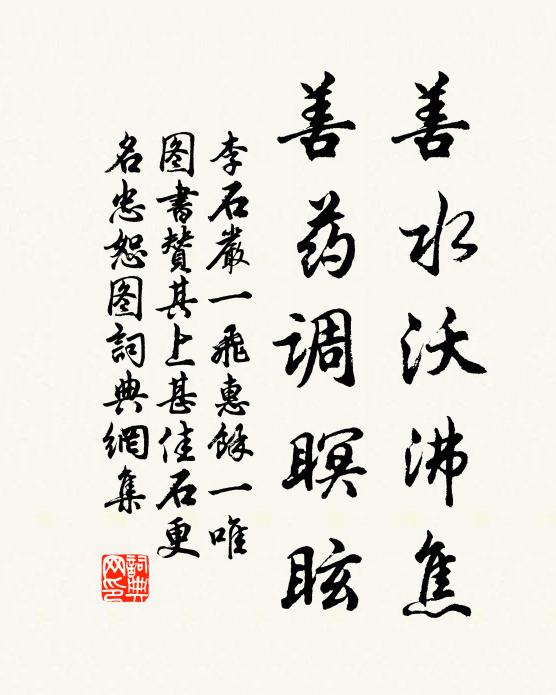 善水沃沸焦
善药调瞑眩
李石嚴一飛惠餘一唯
图書贊其上甚佳石更
名忠恕图詞典網集
詞典网印